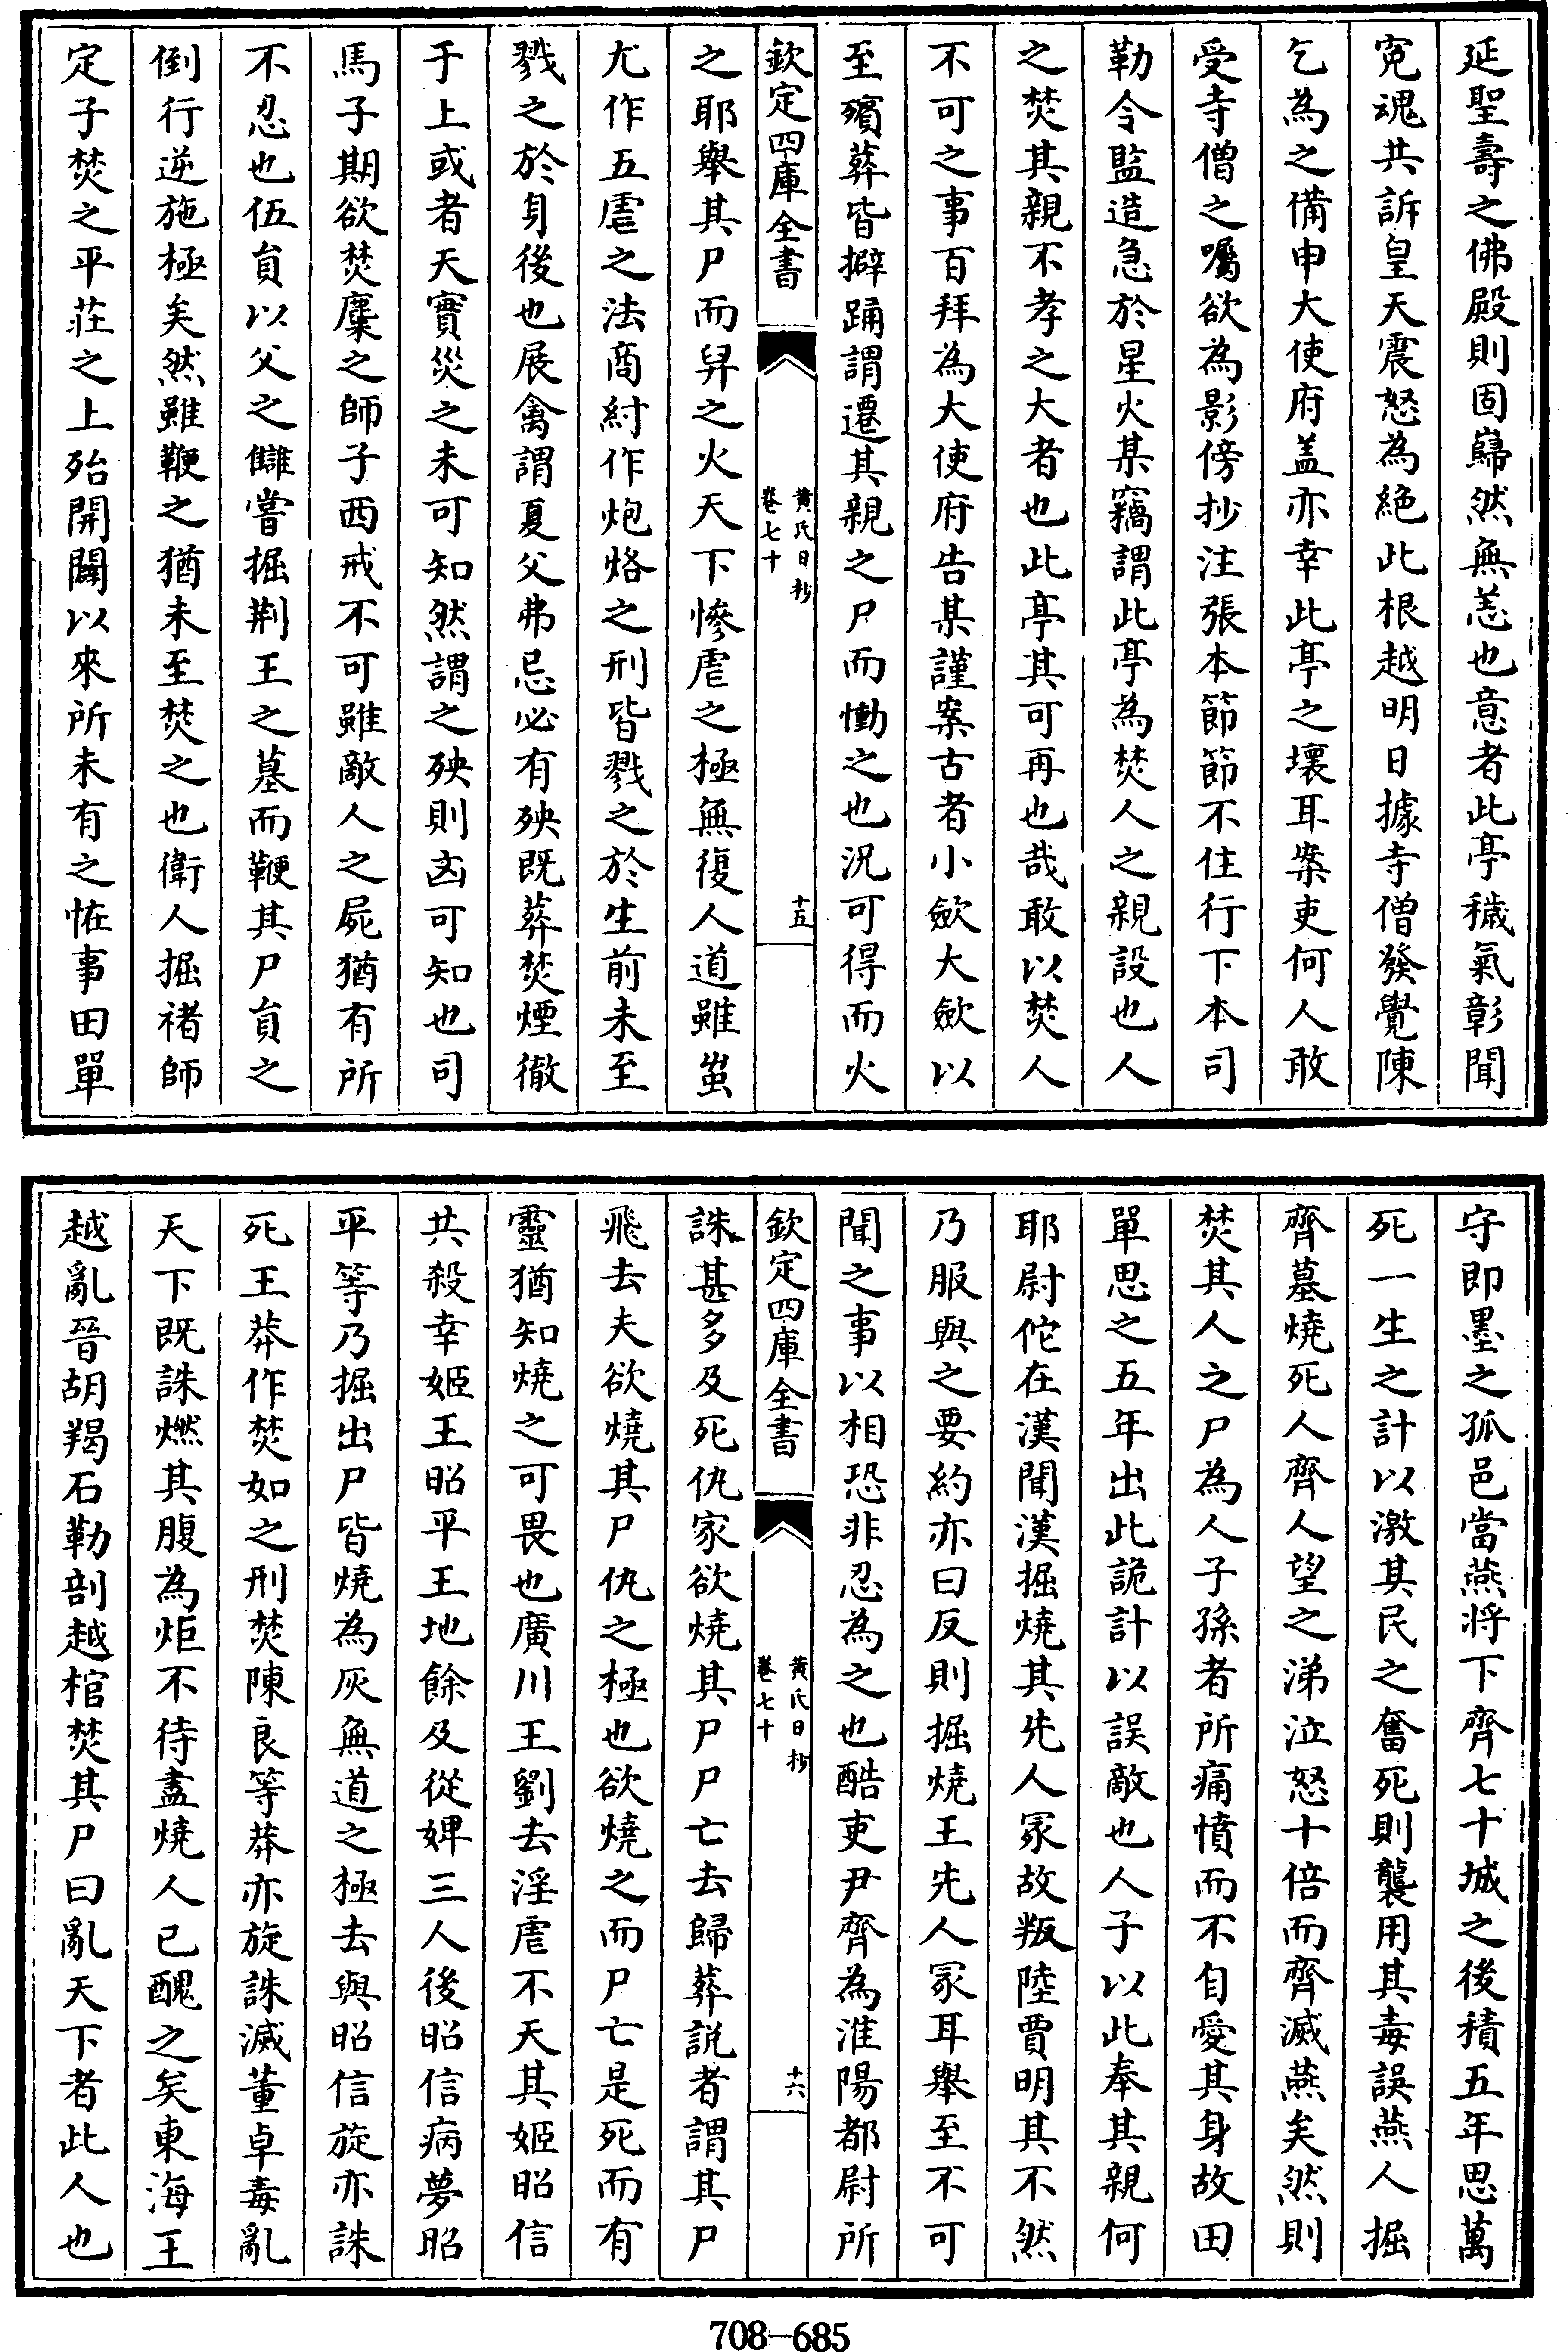 延聖壽之佛殿則固巋然無恙也意者此亭穢氣彰聞
寃魂共訴皇天震怒為絶此根越明日據寺僧發覺陳
乞為之備申大使府盖亦幸此亭之壞耳案吏何人敢
受寺僧之囑欲為影傍抄注張本節節不住行下本司
勒令監造急於星火某竊謂此亭為焚人之親設也人
之焚其親不孝之大者也此亭其可再也哉敢以焚人
不可之事百拜為大使府告某謹案古者小歛大歛以
至殯葬皆擗踊謂遷其親之尸而慟之也況可得而火
欽定四庫全書
黄氏日抄
卷七十
十五
之耶舉其尸而舁之火天下慘虐之極無復人道雖蚩
尤作五虐之法商紂作炮烙之刑皆戮之於生前未至
戮之於身後也展禽謂夏父弗忌必有殃既葬焚煙徹
于上或者天實災之未可知然謂之殃則凶可知也司
馬子期欲焚麇之師子西戒不可雖敵人之屍猶有所
不忍也伍員以父之讎嘗掘荆王之墓而鞭其尸員之
倒行逆施極矣然雖鞭之猶未至焚之也衛人掘褚師
定子焚之平莊之上殆開闢以來所未有之恠事田單
守即墨之孤邑當燕将下齊七十城之後積五年思萬
死一生之計以激其民之奮死則襲用其毒誤燕人掘
齊墓燒死人齊人望之涕泣怒十倍而齊滅燕矣然則
焚其人之尸為人子孫者所痛憤而不自愛其身故田
單思之五年出此詭計以誤敵也人子以此奉其親何
耶尉佗在漢聞漢掘燒其先人冢故叛陸賈明其不然
乃服與之要約亦曰反則掘燒王先人冢耳舉至不可
聞之事以相恐非忍為之也酷吏尹齊為淮陽都尉所
欽定四庫全書
黄氏日抄
卷七十
十六
誅甚多及死仇家欲燒其尸尸亡去歸葬説者謂其尸
飛去夫欲燒其尸仇之極也欲燒之而尸亡是死而有
靈猶知燒之可畏也廣川王劉去淫虐不天其姬昭信
共殺幸姬王昭平王地餘及從婢三人後昭信病夢昭
平等乃掘出尸皆燒為灰無道之極去與昭信旋亦誅
死王莽作焚如之刑焚陳良等莽亦旋誅滅董卓毒亂
天下既誅燃其腹為炬不待盡燒人已醜之矣東海王
越亂晉胡羯石勒剖越棺焚其尸曰亂天下者此人也
708-685